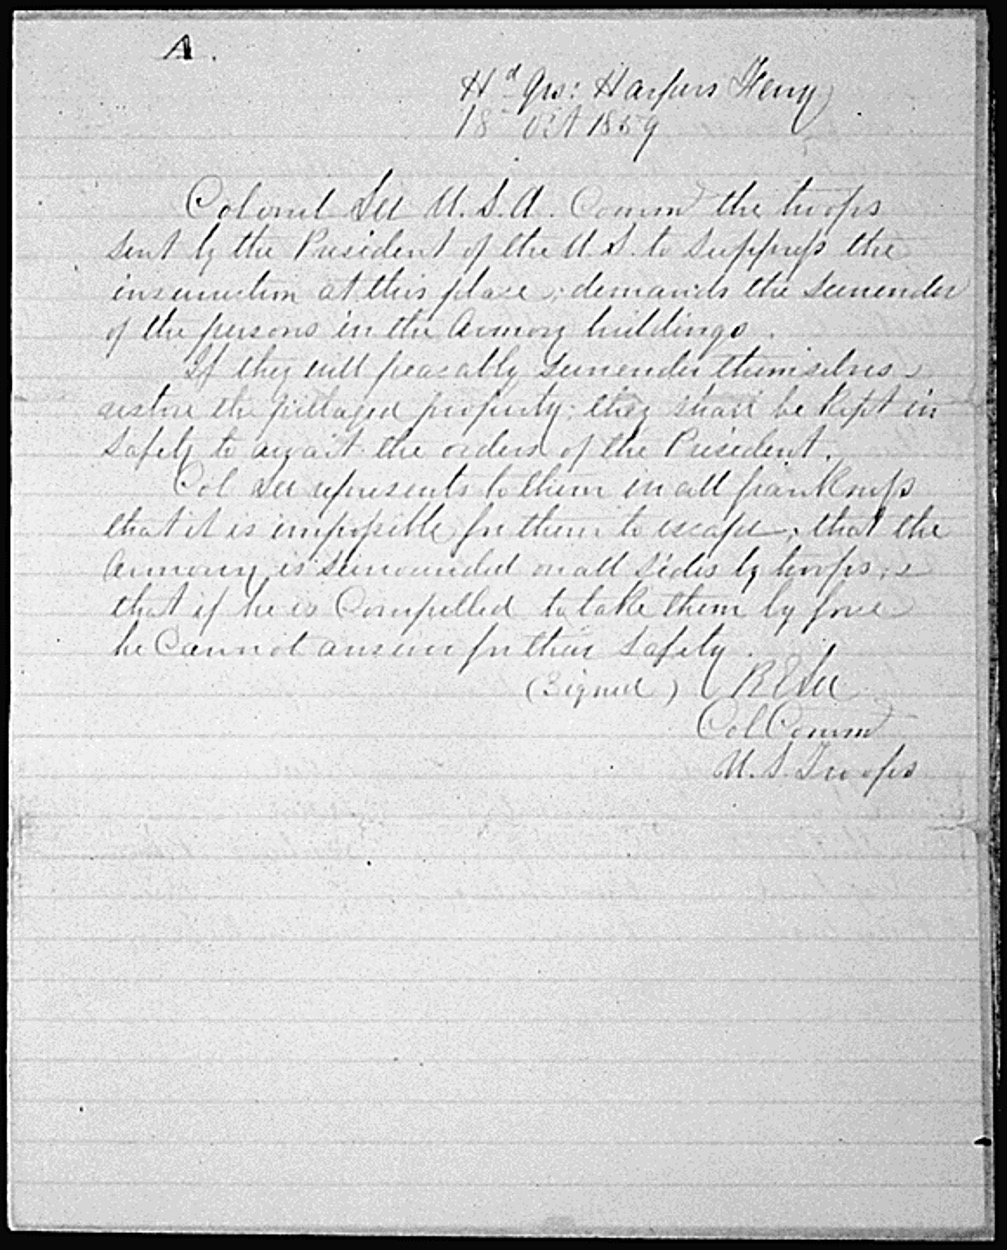 A.
Hd Qrs: Harpers Ferry
18 Oct 1859
Colonel Lee U.S.A. Commd the troops
sent by the President of the U.S. to suppress the
insurrection at this place; demands the surrender
of the persons in the Armory buildings.
If they will peacably surrender themselves &
restore the pillaged property; they shall be kept in
safety to await the orders of the President.
Col Lee represents to them in all frankness
that it is impossible for them to escape; that the
Armory is surrounded on all sides by troops; &
that if he is Compelled to take them by force
he Cannot answer for their safety.
(Signed) R E Lee
Col Commd
U.S. Troops